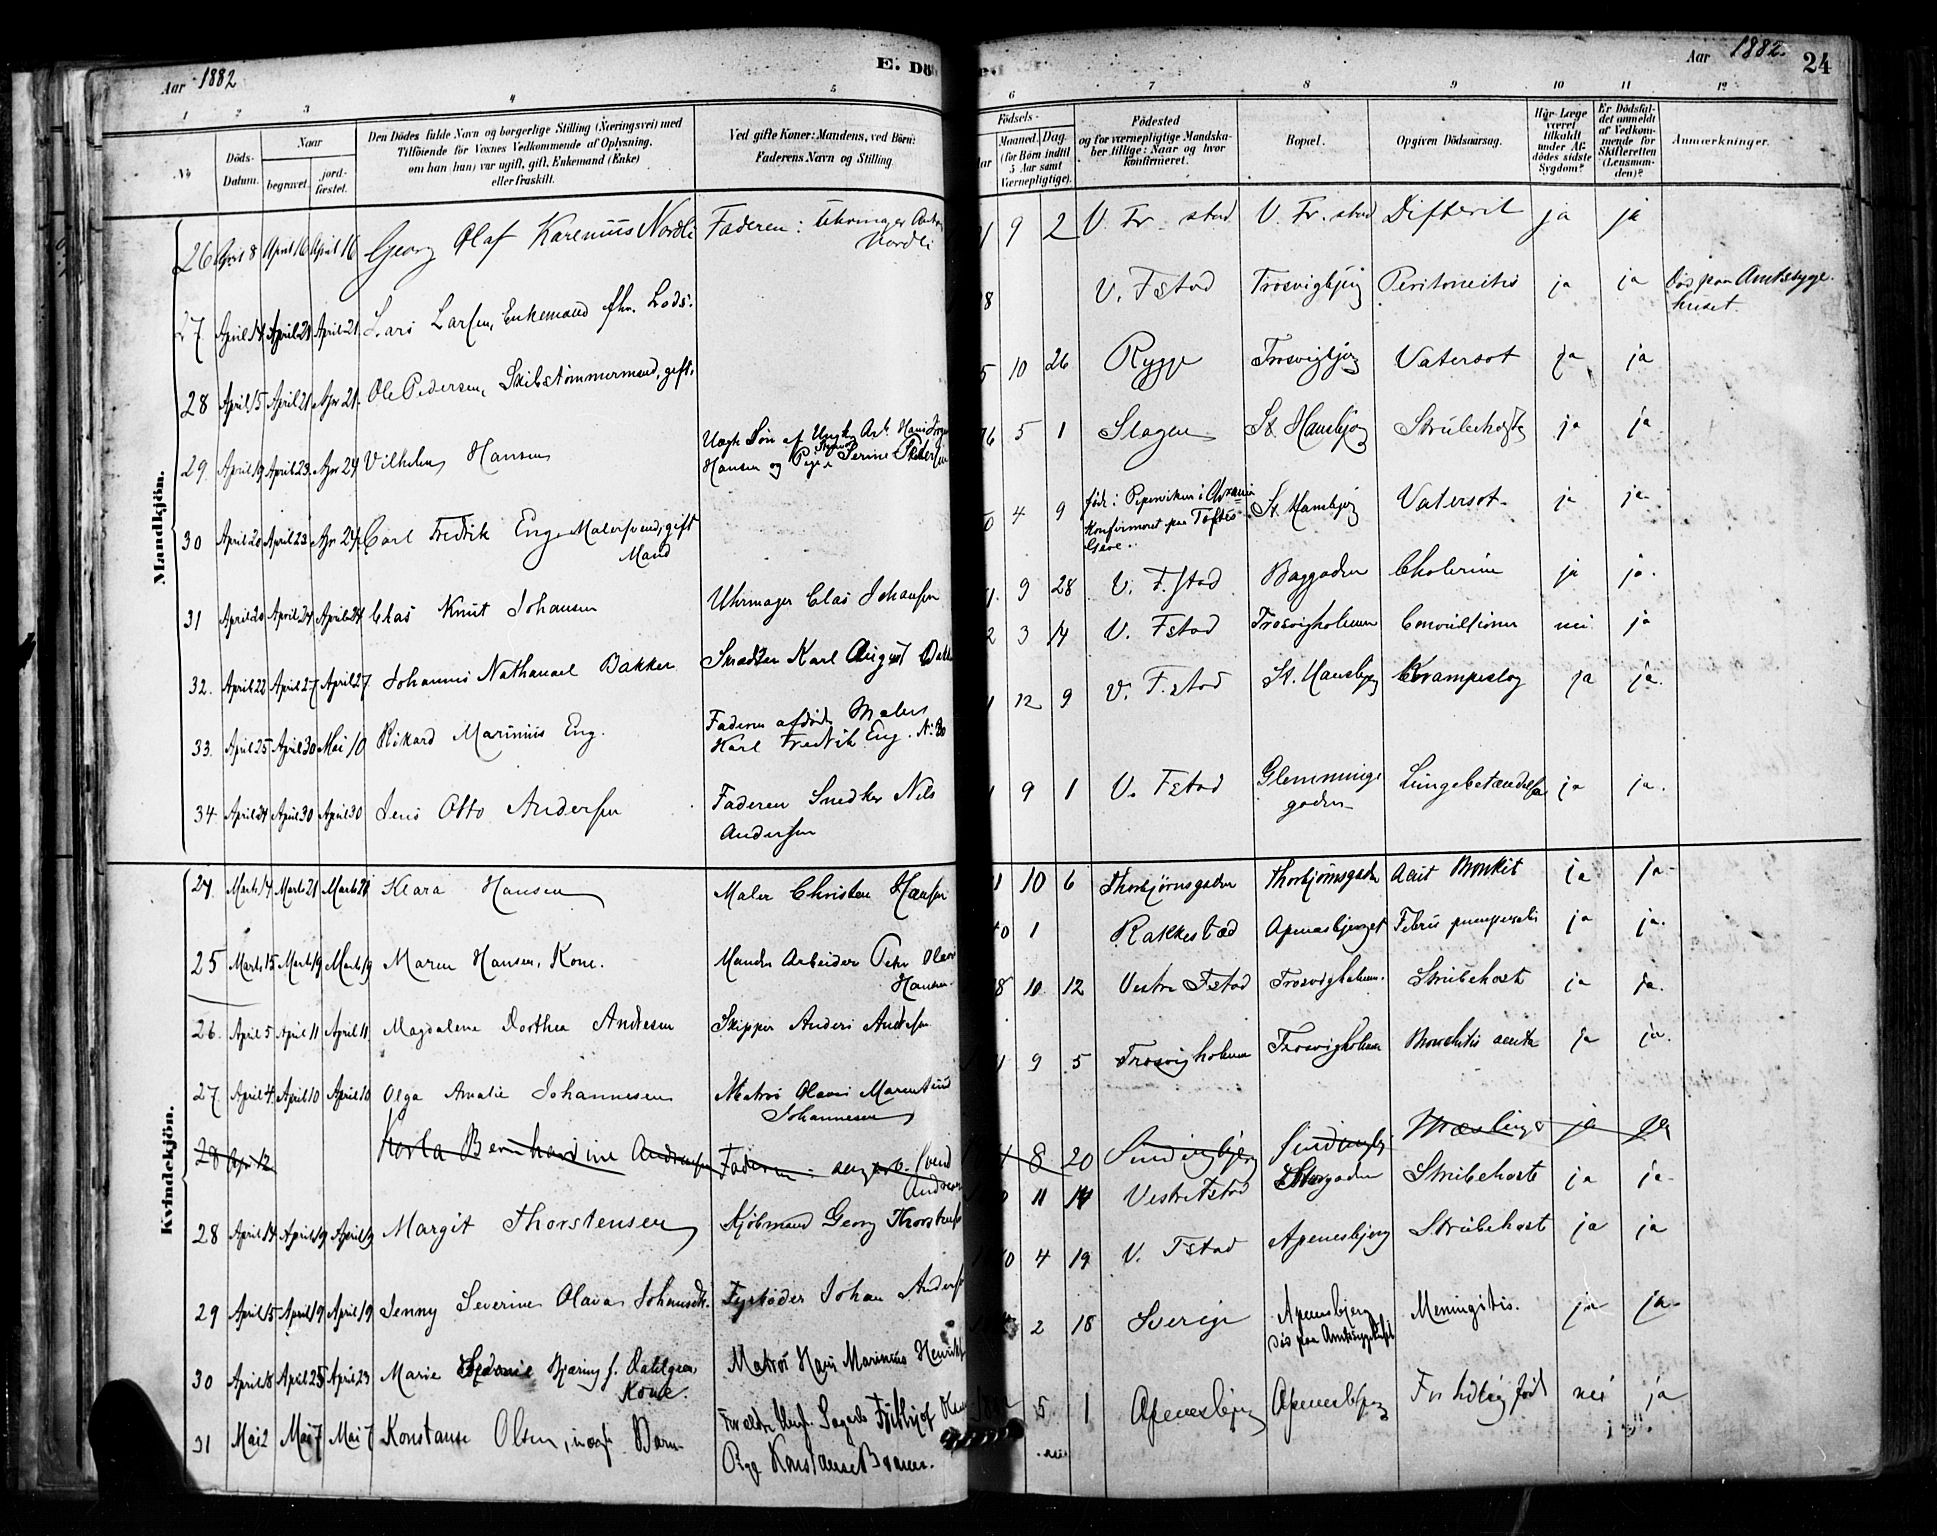 Aar 1882 E. Dö
Aar 1882. 24
1 2 3 4 5 6 7 8 9 10 11 12
No
Döds-Datum.
Naar
begravet.
jord-fæstet.
Den Dödes fulde Navn og borgerlige Stilling (Næringsvei) med
Tilföiende för Voxnes Vedkommende af Oplysning,
om han (hun) var ugift, gift, Enkemand (Enke)
eller fraskilt.
Ved gifte Koner: Mandens, ved Börn:
Faderens Navn og Stilling.
Födsels-
Aar
Maaned. Dag.
(for Børn indtil
5 Aar samt
Værnepligtige).
Födested
og for værnepligtige Mandska-
ber tillige: Naar og hvor
konfirmeret.
Bopæl.
Opgiven Dödsaarsag.
Har Læge
været
tilkaldt
under Af-
dödes sidste
Sygdom?
Er Dödsfal-
det anmeldt
af Vedkom-
mende for
Skifteretten
(Lensman-
den)?
Anmærkninger.
Mandkjön.
26 April 8 April 16 April 16 Georg Olaf Kareniüs Nordli Faderen: Uhrmager Anton Nordli 1 9 2 V. Fr. stad V. Fr. stad Difterit ja ja
27 April 14 April 21 April 21 Lars Larsen, Enkemand fhv. Lods. 8 V. Fstad Trosvigbjerg Peritonitis ja ja Död paa Amtssyge-
huset.
28 April 15 April 21 Apr 21. Ole Pedersen, Skibstömmermand, gift. 5 10 26 Rygge Trosvigbjerg Vatersot ja ja
29 April 19 April 23. Apr 24 Vilhelm Hansen Uægte Sön af Ungk. Arb. Hans
Hansen og Pige Serine Pedersen 76 5 1 Slagen St. Hansbjerg Strübehoste ja ja
30 April 20 April 23 Apr 24 Carl Fredrik Eng Malersvend, gift
Mand 4 9 född i Piperviken i
Konfirmeret paa Toftes
Gave. St. Hansbjerg Vatersot ja ja
31 April 20 April 24 April 24 Clas Knut Johansen Uhrmager Clas Johansen 1. 9 28 V. F.stad Baggaden Cholerine ja ja
32. April 22 April 27 April 27 Johannes Nathanael Bakker Snedker Karl August Bakk 2 3 14 V. Fstad Trosvigholmen Convulsioner nei ja
33. April 25 April 30 Mai 10 Rikard Mariniüs Eng. Faderen afdöde Maler
Karl Fredrik Eng. No 30 1 12 9 V. F.stad St. Hansbjerg Krampeslag ja ja.
34. April 24 April 30 April 30 Jens Otto Andersen Faderen Snedker Nils
Andersen 9 1 V. Fstad Glemminge
gaden Lungebetændelse ja ja.
Kvindekjön.
24. Marts 14 Marts 21 Marts 21 Klara Hansen Maler Christen Hansen 1 10 6 Thorbjörnsgaden Thorbjörnsgaden Acut Bronkit ja ja
25 Marts 15 Marts 19 Marts 19 Maren Hansen, Kone. Manden Arbeider Peter Olaus
Hansen. 40 1 Rakkestad Apenæsbjerget Febris puerperalis ja ja.
26. April 5 April 11 April 11. Magdalene Dorthea Andresen Skipper Anders Andresen 8 10 12 Vestre Fstad Trosvigholmen. Strübehoste ja ja.
27. April 4 April 10 April 10 Olga Amalie Johannesen Matros Olavus
Johannesen 1 9 5 Trosvigholmen Trosvigholmen Bronchitis acuta ja ja.
28 Apr 12 Bernhardine Andreasen Faderen Svend
Andreas 8 20 Mæslinger ja ja
28 April 14 April 19 April 19 Margit Thorstensen Kjöbmand Georg Thorstensen 11 14 Vestre Fstad Storgaden Strübehoste ja ja
29 April 15 April 19 April 19 Jenny Severine Olava Johansdtr. Fyrböder Johan Anders 4 19 V. Fstad Apenesbjerg Strübehoste ja ja
30 April 18 April 23 April 23 Marie Bjerring f. Dahlgren
Kone. Matros Hans Marinius Henrikse 2 18 Sverige Apenesbjerg
död paa Amtssygehuset Meningitis. ja ja
31 Mai 2 Mai 7 Mai 7 Konstanse Olsen, uægte Barn Forældre Ungk.
Pige Konstanse 5 1 Apenesbjerg Apenesbjerg For tidlig född nei ja